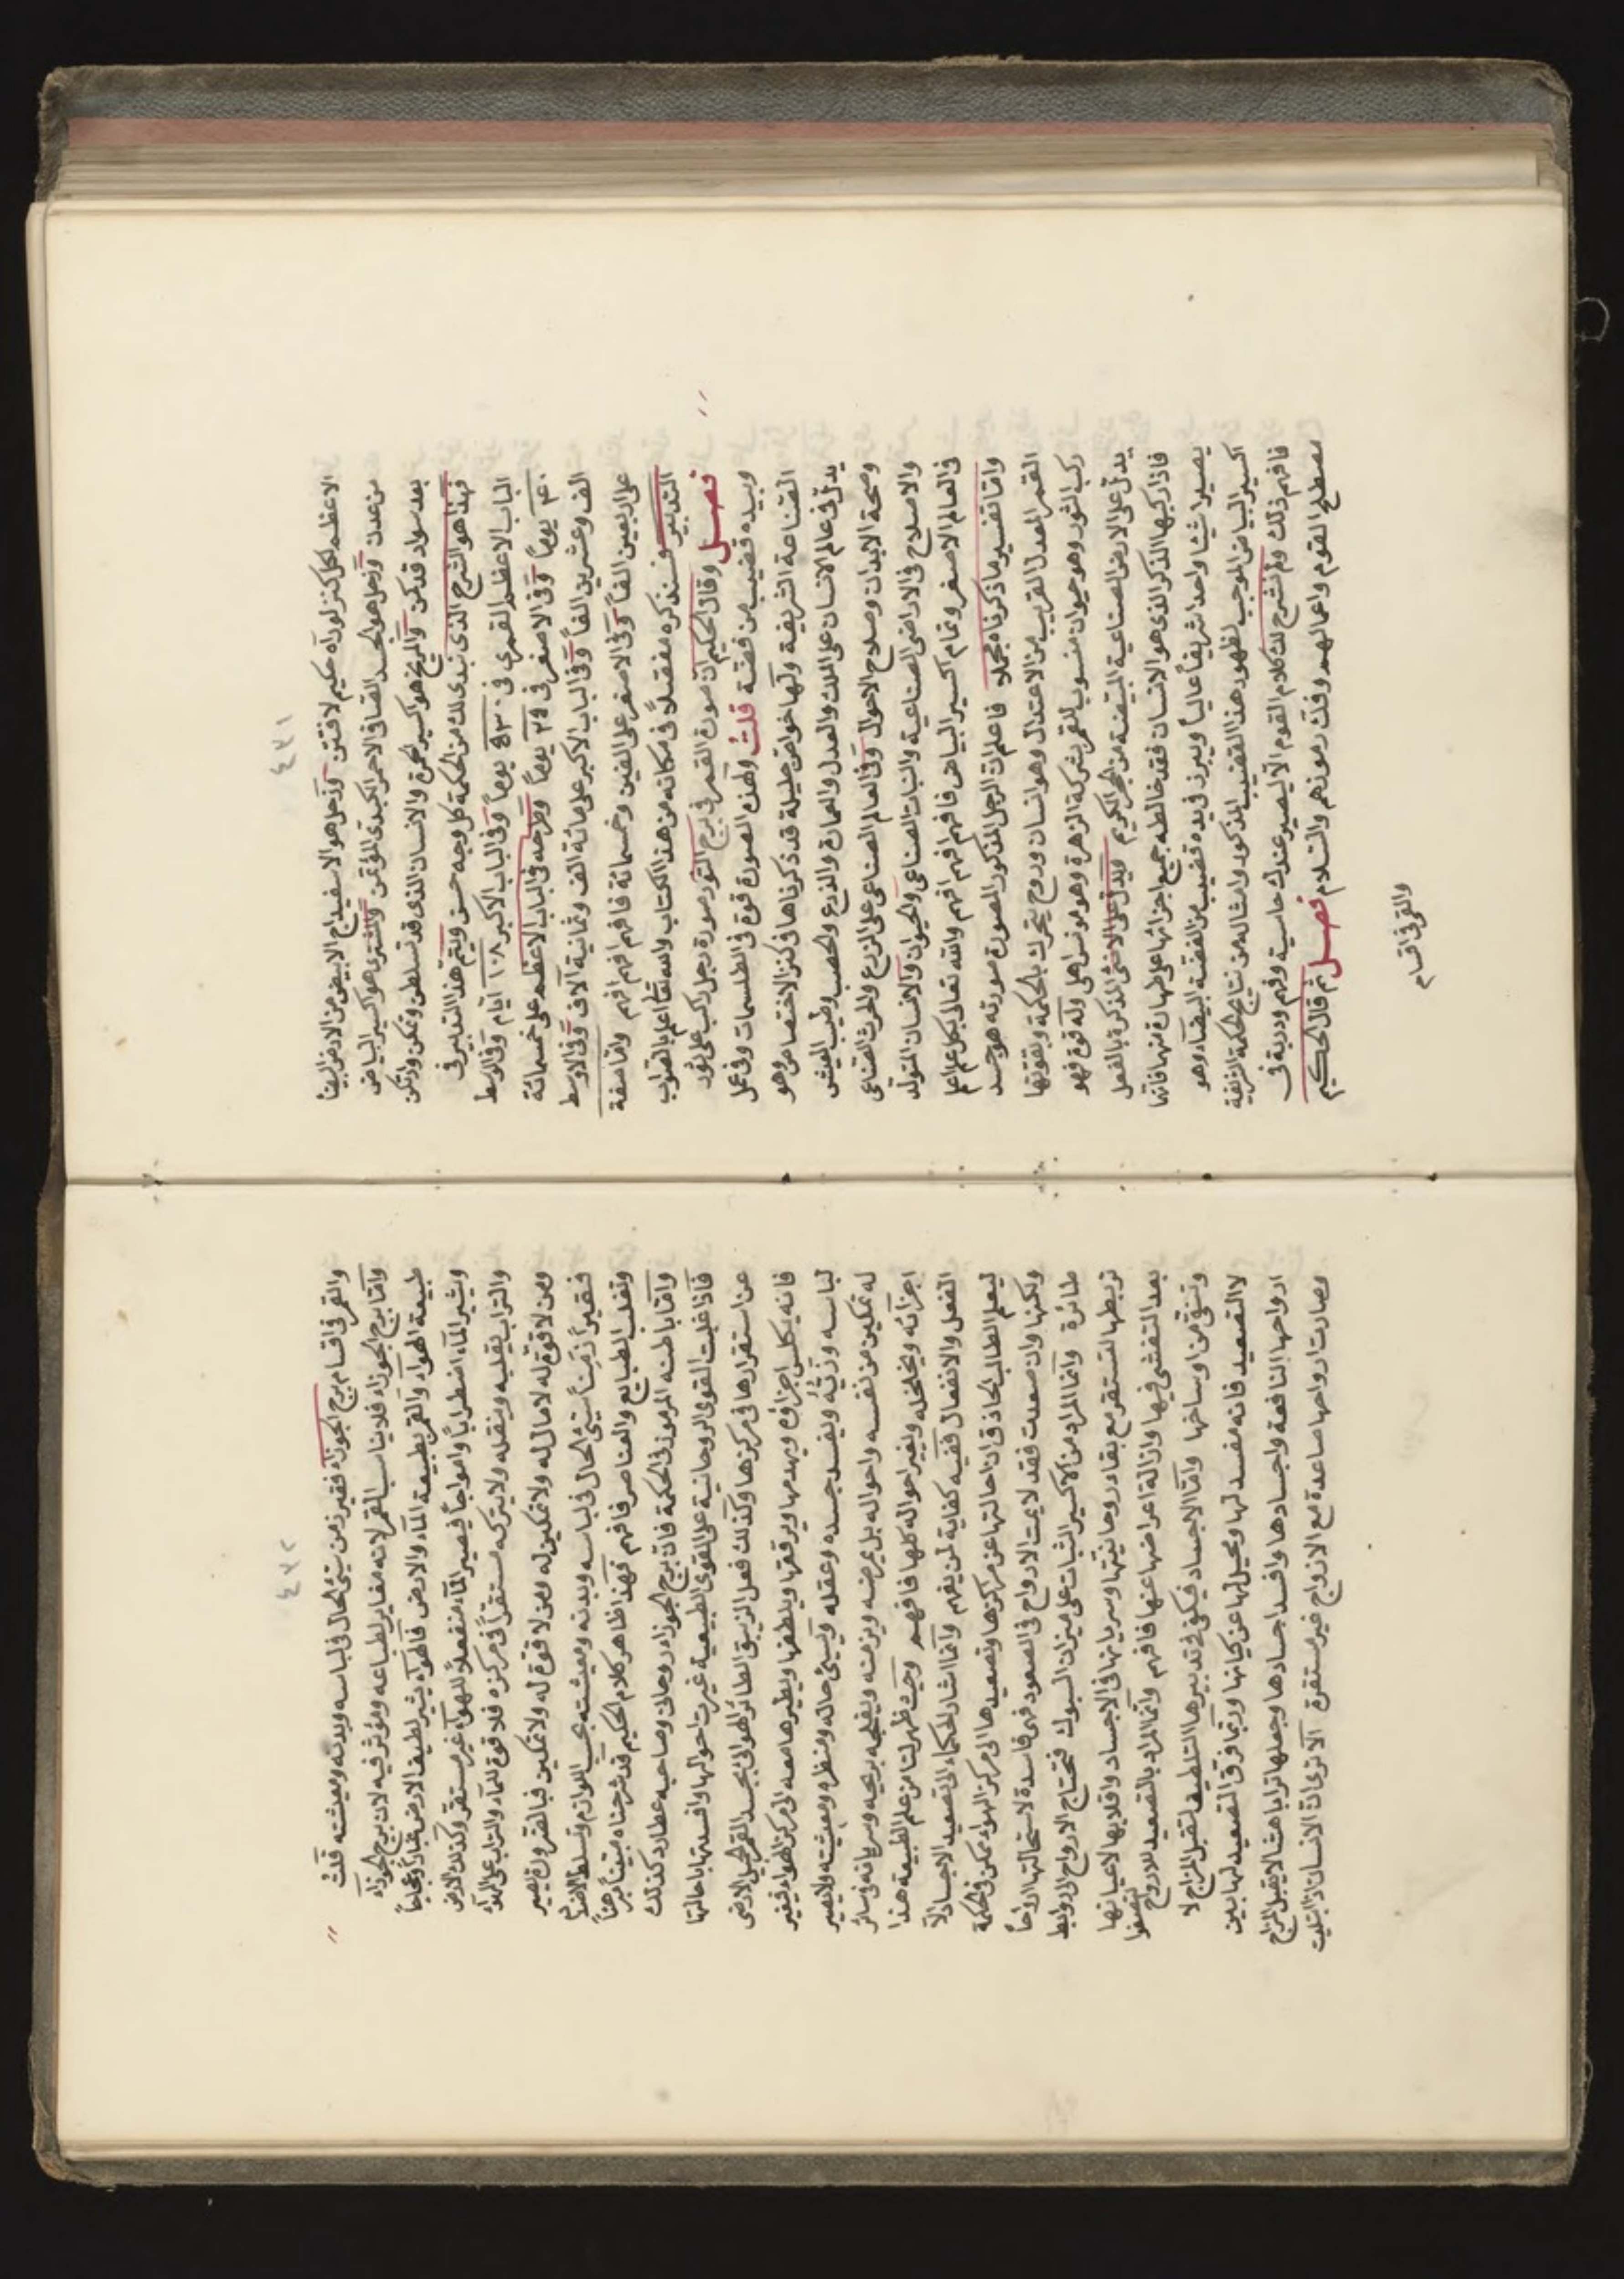 ٤٧١
الاعظم لكل كنز لوراه حكيم لافتتن وزحل هو الاسفيداج الابيض من الارض البيضا
من عدن وزحل هو الجسد القاني الاحمر الكبدي المؤتمن والمشتري هو اكسير البياض
بعد سواد قد كمن والمريخ هو اكسير الحمرة والانسان الذي قد تسلطن وتمكن
فهذا هو الشرح الذي نبدي لك من الحكمة كل وجه حسن ويتم هذا التدبير في
الباب الاعظم القمري في يوماً وفي الباب الاكبر ١٠٨ ايام وفي الاوسط
٤٠ يوماً وفي الاصغر في يوماً وطرحه في الباب الاعظم على خمسمائة
الف وعشرين الفاً وفي الباب الاكبر على مائة الف وثمانية آلاف وفي الاوسط
على اربعين الفاً وفي الاصغر على الفين وخمسمائة فافهم افهم افهم واما صفة
التدبير فسنذكره مفصلاً في مكانه من هذا الكتاب والله تعالى اعلم بالصواب
فصل وقال الحكيم ان صورة القمر في برج الثور صورة رجل راكب على ثور
وبيده قضيب من فضة قلت ولهذه الصورة قوة في الطلسمات وفي عمل
الصناعة الشريفة ولها خواص جليلة قد ذكرناها في كنز الاختصاص وهو
يدل في عالم الانسان على الملك والعدل والعمارة والزرع والخصب وطيب العيش
وصحة الابدان وصلاح الاحوال وفي العالم الصناعي على الزرع والحرث الصناعي
والاصلاح في الاراضي الصناعية والنبات الصناعي والحيوان والانسان المتولد
في العالم الاصغر وتمام اكسير البياض فافهم افهم والله تعالى بكل علم اعلم
واما تفسير ما ذكرناه مجملا فاعلم ان الرجل المذكور المصورة صورته هو جسد
القمر المعدل القريب من الاعتدال وهو انسان وروح يتحرك بالحكمة وبقوتها
ركب الثور وهو حيوان منسوب للقمر بشركة الزهرة وهو مونس اهلي وله قوة فهو
يدل على الارض الصناعية المبيضة من الحجر الكريم ويدل على الانثى المذكرة بالفعل
فاذا ركبها الذكر الذي هو الانسان فقد خالطه جميع اجزائها على طهارة منهما فانهما
يصيرا شيئا واحدا شريفاً عالياً ويبرز في يده قضيب من الفضة البيضاء وهو
اكسير البياض الموجب لظهور هذا القضيب المذكور وامثاله من نتايج الحكمة الشريفة
فافهم ذلك ولم نشرح لك كلام القوم الا ليصير عندك حاسية وفهم ودربة في
مصطلح القوم واعمالهم وفك رموزهم والسلام فصل ثم قال الحكيم
والقمر في اقسام
٤٧٢
والقمر في اقسام برج الجوزاء فقير زمن سيئ الحال في لباسه وبدنه ومعيشته قلت
واما برج الجوزاء فلا يناسب القمر لانه مغاير لطباعه ومؤثر فيه لان برج الجوزاء
طبيعة الهواء والقمر بطبيعة الماء والارض فالهواء يثير لطيف الارض غباراً وعجاجاً
ويثير الماء اضطراباً وامواجاً فيصير الماء منفعلاً للهواء غير مستقر وكذلك الارض
والتراب يقلبه وينقله ولا يتركه مستقراً في مركزه فلا قوة للماء والتراب على الهواء
ومن لا قوة له لا مال له ولا تمكين له ومن لا قوة له ولا تمكين فبالضرورة يصير
فقيراً زمناً سيئ الحال في لباسه وبدنه ومعيشته بحسب اللوازم وتسلط الاضداد
وتغلب الطبايع والعناصر فافهم فهذا ظاهر كلام الحكيم قد شرحناه مبيناً مبرهناً
واما باطنه المرموز في الحكمة فان برج الجوزاء روحاني وصاحبه عطارد كذلك
فاذا غلبت القوى الروحانية على القوى الطبيعية غيرت احوالها وافسدتها باحالتها
عن استقرارها في مركزها وكذلك فعل الزيبق الطائر الهوائي بجسد القمر الجميل الارضي
فانه يكلس اجزاءه ويهدمها ويرققها ويلطفها ويطيرها معه الى مركز الهواء فيغير
لباسه وزيّه ويفسد جسده وعقله ويسيئ حاله ومنظره ومعيشته ولا يصير
له تمكين من نفسه واحواله بل يمرضه ويزمنه ويفلجه بريحه وسريانه في سائر
اجزائه ويخلخله ويغير احواله كلها فافهم وحيث ظهر لنا من علم الطبيعة هذا
الفعل والانفعال ففيه كفاية لمن يفهم وانما اشار الحكماء الى تصعيد الاجساد الا
ليعلم الطالب الحاذق ان احالتها عن مراكزها وتصعيدها الى مركز الهواء ممكن في الحكمة
ولكنها وان صعدت فقد لايمت الارواح في الصعود فهي فاسدة لاستحالتها ارواحاً
طائرة وانما المراد من الاكسير الثبات على ميزان السبوك فتحتاج الارواح الى روابط
تربطها لتستقر مع بقاء روحانيتها وسريانها في الاجساد واقلابها لاعيانها
بعد التفشي فيها وازالة اعراضها عنها فافهم وانما المراد بالتصعيد للارواح لتصفوا
وتنقى من اوساخها واما الاجساد فيكفي في تدبيرها التلطيف لتقبل المزاج لا
لا التصعيد فانه مفسد لها ومحيل لها عن كيانها وربما فرق التصعيد لها بين
ارواحها النافعة واجسادها وافسد اجسادها وجعلها ترابا هشا لا يقبل المزاج
وصارت ارواحها صاعدة مع الارواح غير مستقرة الا ترى ان الانسان اذا ابتليت